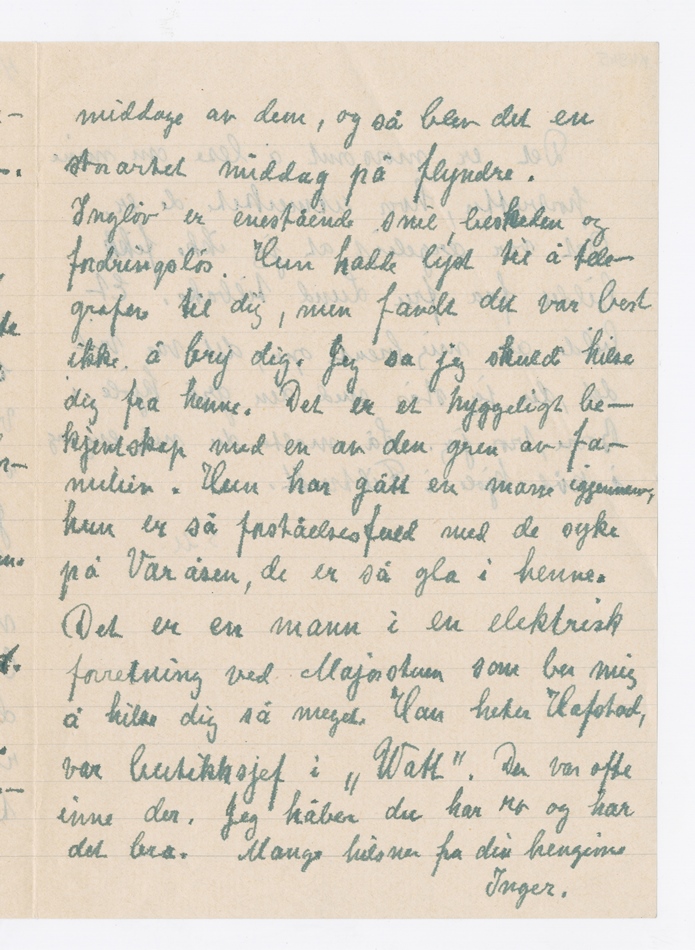 middage av dem, og så blev det en
storartet middag på flyndre.
Ingløv er enestående snil, beskeden og
fordringsløs. Hun hadde lyst til å tele-
grafere til dig, men fandt det var best
ikke å bry dig. Jeg sa jeg skulde hilse
dig fra henne. Det er et hyggeligt be-
kjentskap med en av den gren av fa-
milien. Hun har gått en masse igjennem,
hun er så forståelsesfuld med de syke
på Vardåsen, de er så gla i henne.
Det er en mann i en elektrisk
forretning ved Majorstuen som ber mig
å hilse dig så meget. Han heter Hafstad,
var butikksjef i „Watt”. Du var ofte
inne der. Jeg håber du har ro og har
det bra. Mange hilsner fra din hengivne
Inger.